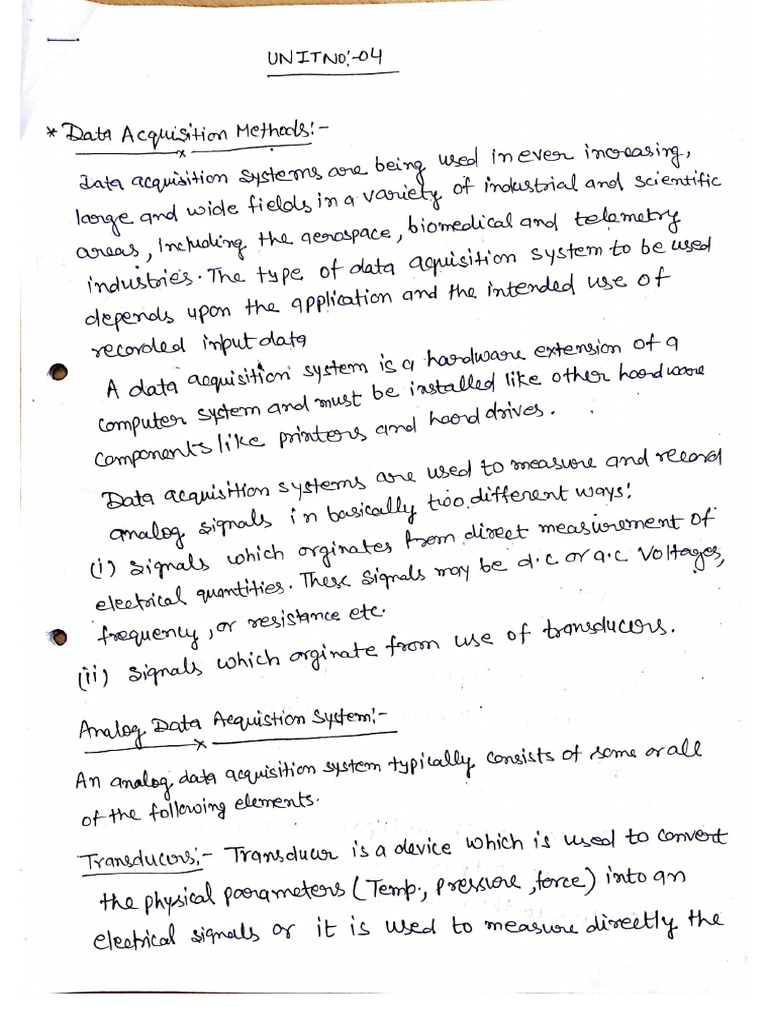 UNITNO:-04
* Data Acquisition Methods:-
Data acquisition systems are being used in ever increasing,
large and wide fields in a variety of industrial and scientific
areas, Including the aerospace, biomedical and telemetry
industries. The type of data aquisition system to be used
depends upon the application and the intended use of
recorded input data
A data acquisition system is a hardware extension of a
computer system and must be installed like other hardware
components like printers and hard drives.
Data acquisition systems are used to measure and record
analog signals in basically two different ways:
(i) Signals which orginates from direct measurement of
electrical quantities. These signals may be d.c or a.c Voltages,
frequency, or resistance etc.
(ii) Signals which orginate from use of transducers.
Analog Data Acquistion System:-
An analog data acquisition system typically consists of some or all
of the following elements.
Transducers:- Transducer is a device which is used to convert
the physical parameters (Temp., pressure, force) into an
electrical signals or it is used to measure directly the